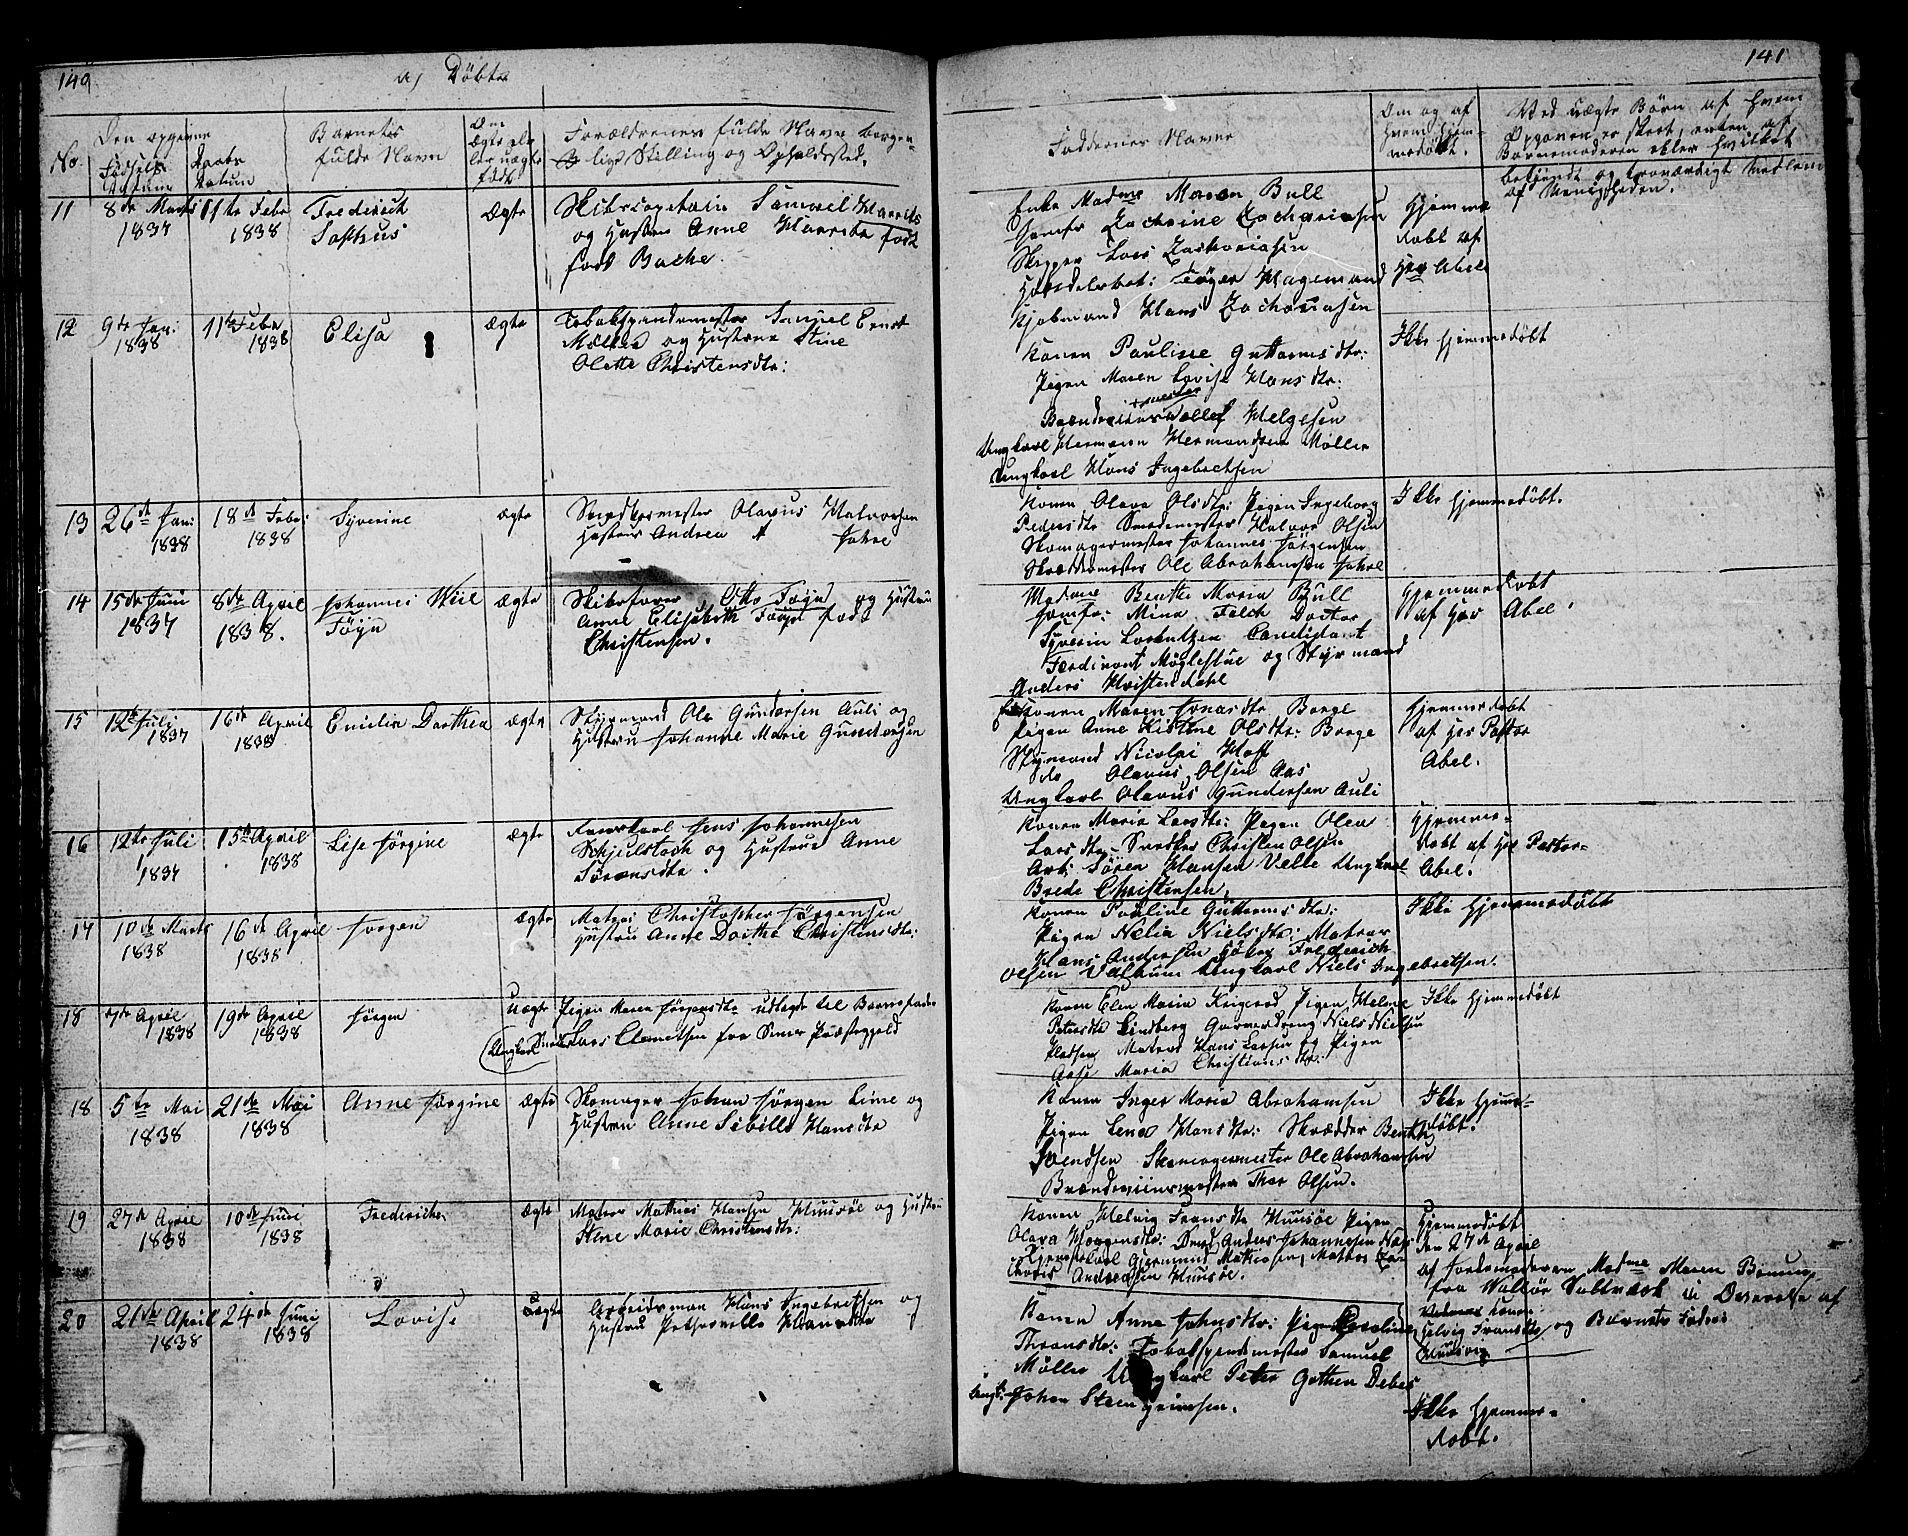 140
a) Døbte
No.
Den opgivne
Fødsels Datum
Daabs Datum
Barnets
fulde Navn
Om
Ægte el-
ler uægte
født
Forældrenes fulde Navn borger-
lige Stilling og Opholdssted.
11
8de Marts
1837
11te Febr
1838
Frederich
Sophus
Ægte
Skibscapetain Samuel
og Hustru Anne født
født Bache.
12
9de Jan:
1838
11te Febr
1838
Elisa
ægte
Tobakspindemester Samuel Ernst
Møller og Hustrue Stine
Olette Christensdtr:
13
26de Jan:
1838
18de Febr:
1838
Syverine
ægte
Snedkermester Olavus Halvorsen
Hustrue Andrea
14
15de Juni
1837
8de April
1838.
Johannes Wiil
Føyn
Ægte
Skibsfører Otto Føyn og Hustru
Anne Elisabeth Føyn født
Christensen.
15
12te Juli
1837
16de April
1838
Emilie Dorthea
ægte
Styrmand Ole Gundersen Auli og
Hustru Johanne Marie Gundersen
16
12te Juli
1837
15de April
1838
Lise Jørgine
ægte
Jens Johannesen
og Hustrue Anne
Sørensdtr.
17
10de Marts
1838
16de April
1838
Jørgen
ægte
Matros Christopher Jørgensen
Hustru Anne Dorthe Christensdtr:
18
7de April
1838
19de April
1838
Jørgen
uægte
Pigen Maren Jørgensdtr udlagt til Barnefader
(Ungkarl Lars Clemetsen fra Præstegjeld
18
5te Mai
1838
21de Mai
1838
Anne Jørgine
ægte
Skomager Johan Jørgen Lime og
Hustru Anne Sibille Hansdtr
19
27de April
1838
10de Juni
1838
Frederiche
ægte
Matros Mathias Hansen Huusøe og Hustru
Stene Marie Christensdtr:
20
21de April
1838
24de Juni
1838
Lovise
ægte
Arbeidsmand Hans Ingebretsen og
Hustru Pethronelle Hansdtr
141
Faddernes Navne
Om og af
hvem hjem-
medøbt.
Ved uægte Børn af hvem
Opgaven er skeet, enten af
Barnemoderen eller hvilket
bekjendt og troværdigt Medlem
af Menigheden.
Enke Madme Maren Bull
Jomfr Zachrine Zachariasen
Skipper Lars Zachariasen
Handelsbet: Føyer Hagemand
Kjøbmand Hans Zachariasen
Hjemme
døbt af
Hr Abel
Konen Pauline Guttormsdtr:
Pigen Maren Lovise Hansdtr:
Brænderiesmester Helgesen
Ungkarl Hermann Hermandsen Møller
Ungkarl Hans Ingebretsen
Ikke hjemmedøbt
Konen Olava Olsdtr: Pigen Ingeborg
Pedersdtr Smedemester Halvor Olsen
Skomagermester Johannes Jørgensen
Skræddermester Ole Abrahamsen
Ikke hjemmedøbt.
Madme Benthe Maria Bull
Jomfr: Mina Doctor
Syverin Lorentzen Candidant
Ferdinant Møglestue og Styrmand
Anders Hvistendahl
Hjemmedøbt
af Her Abel.
Konen Maren Jonasdtr Borge
Pigen Anne Kistine Olsdtr: Borge
Styrmand Nicolai Hoff
do Olavus Olsen Aas
Ungkarl Olavus Gundersen Auli
Hjemmedøbt
af Her Pastor
Abel.
Konen Maria Larsdtr: Pigen Olea
Larsdtr: Snedker Christen Olsen.
Arb: Søren Hansen Velle Ungkarl
Brede Christensen.
Hjemme-
døbt af Her Pastor
Abel.
Konen Pauline Guttormsdtr:
Pigen Nelia Nielsdtr: Matros
Hans Andersen Frederich
Olsen Ungkarl Niels Ingebretsen.
Ikke Hjemmedøbt
Konen Elen Maria Pigen Helene
Petersdtr Lindberg Garverdreng Niels Nielsen
Matros Hans Larsen og Pigen
Aase Maria Christiansdtr:
Ikke Hjemmedøbt
Konen Inger Maria Abrahamsen
Pigen Lene Hansdtr: Skrædder Benth
Svendsen Skomagermester Ole Abrahamsen
Brænderiesmester Thor Olsen.
Ikke Hjem-
døbt.
Konen Helvig Fransdtr Huusøe Pigen
Olava Dreng Anders Johannesen
Gjermund Mathisen, Matros
Andreasen Huusøe.
Hjemmedøbt
den 27de April
af Jordemoderen Madme Maren Bruun
fra Valløe Saltværk i Overvær af
Konen
Helvig Fransdtr og Barnets Fader
Huusøe
Konen Anne Johnsdtr: Pigen Caroline
Thronsdtr: Tobakspindmester Samuel
Møller Ungkarl Peter Gothen Debes
Ungk: Johan Steengrimsen.
Ikke Hjemme-
døbt.